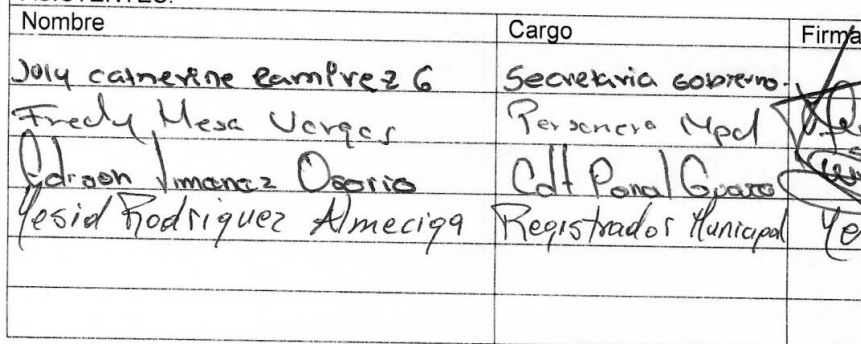 ASISTENTES:
Nombre Cargo Firma
Joly catherine Ramírez G Secretaria Gobierno.
Fredy Mesa Vargas Personero Mpal
Edison Jimenez Osorio Cdt Ponal
Yesid Rodriguez Almeciga Registrador Municipal Ye